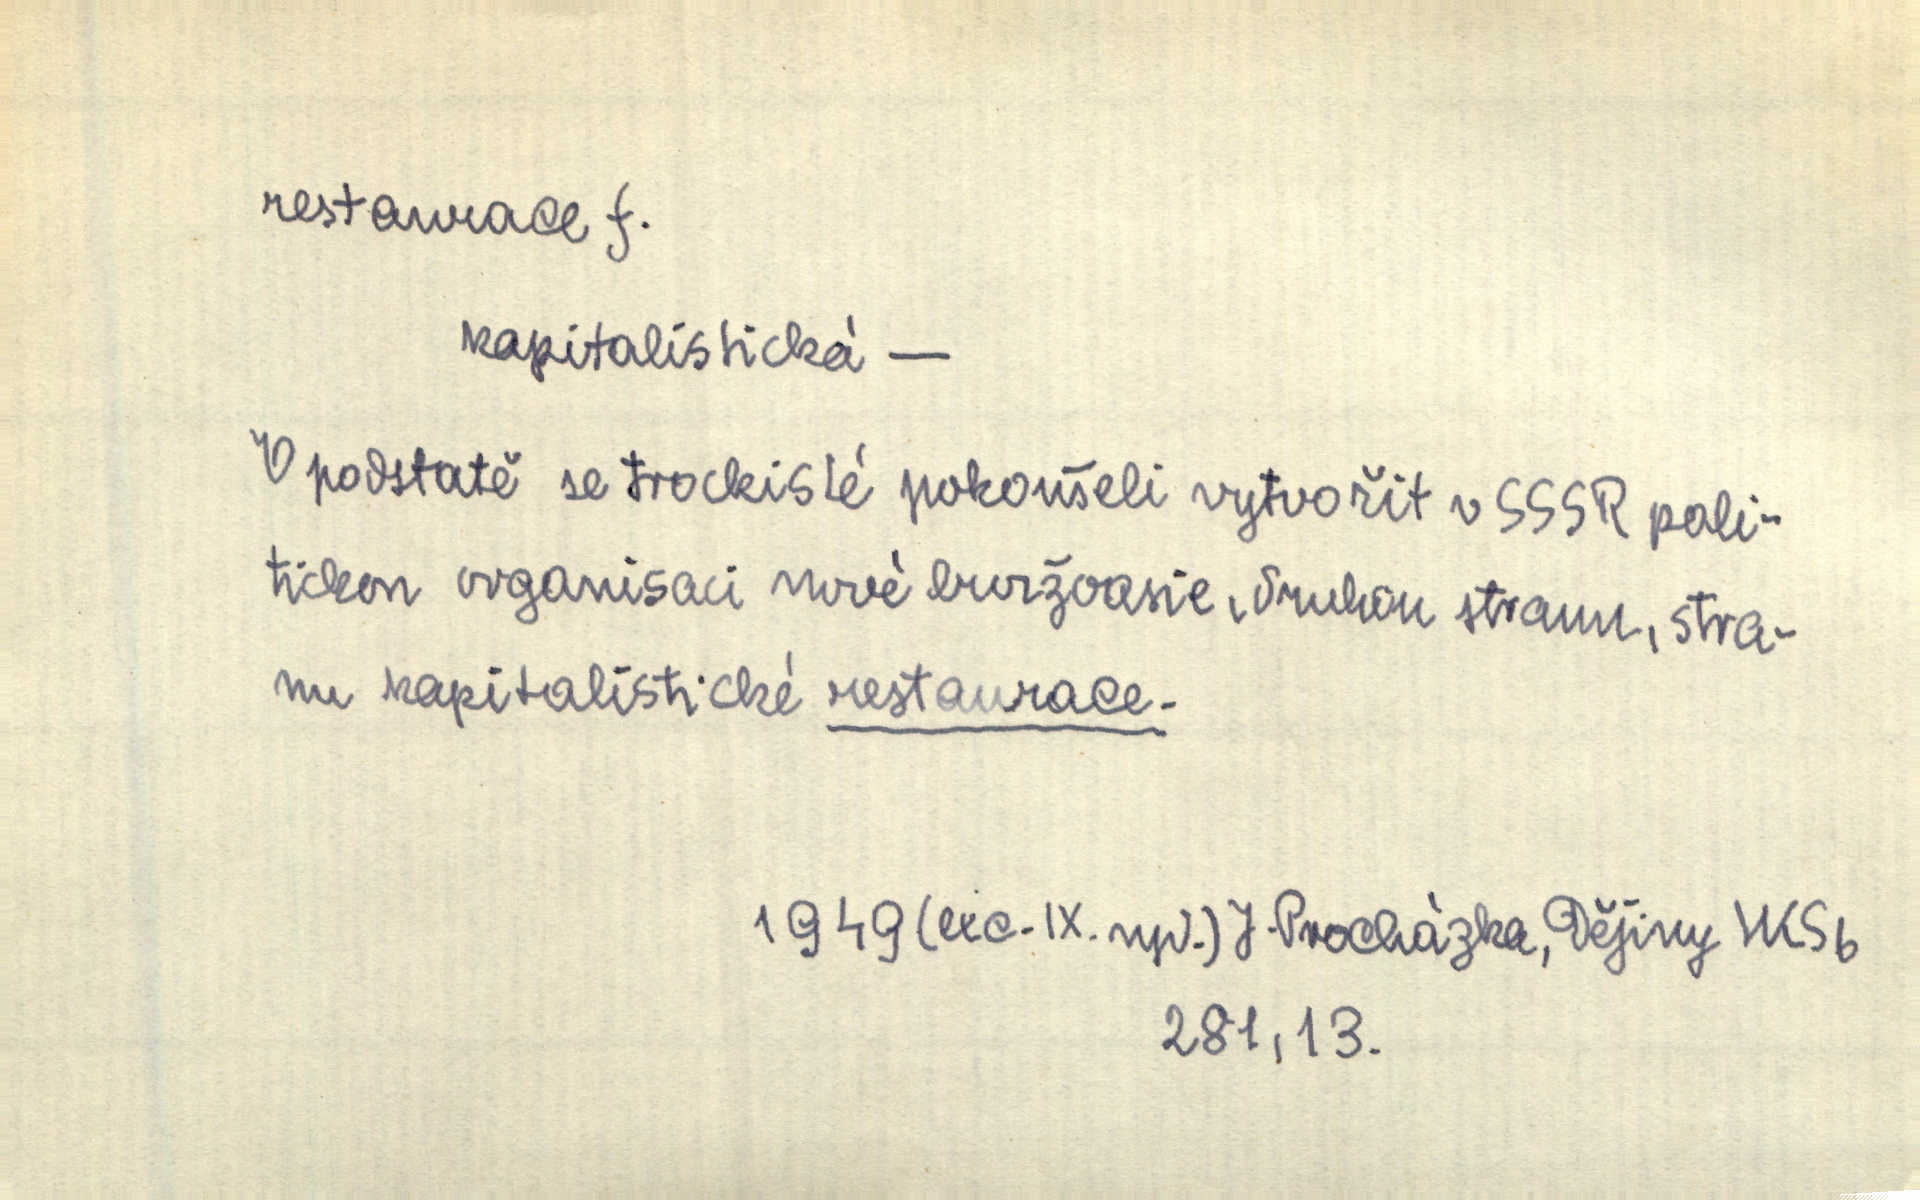 restaurace f.
kapitalistická —
V podstatě se trockisté pokoušeli vytvořit v SSSR poli-
tickou organisaci nové buržoasie, druhou stranu, stra-
nu kapitalistické restaurace.
1949 (exc. IX. vyd.) J. Procházka, Dějiny VKSb
281,13.